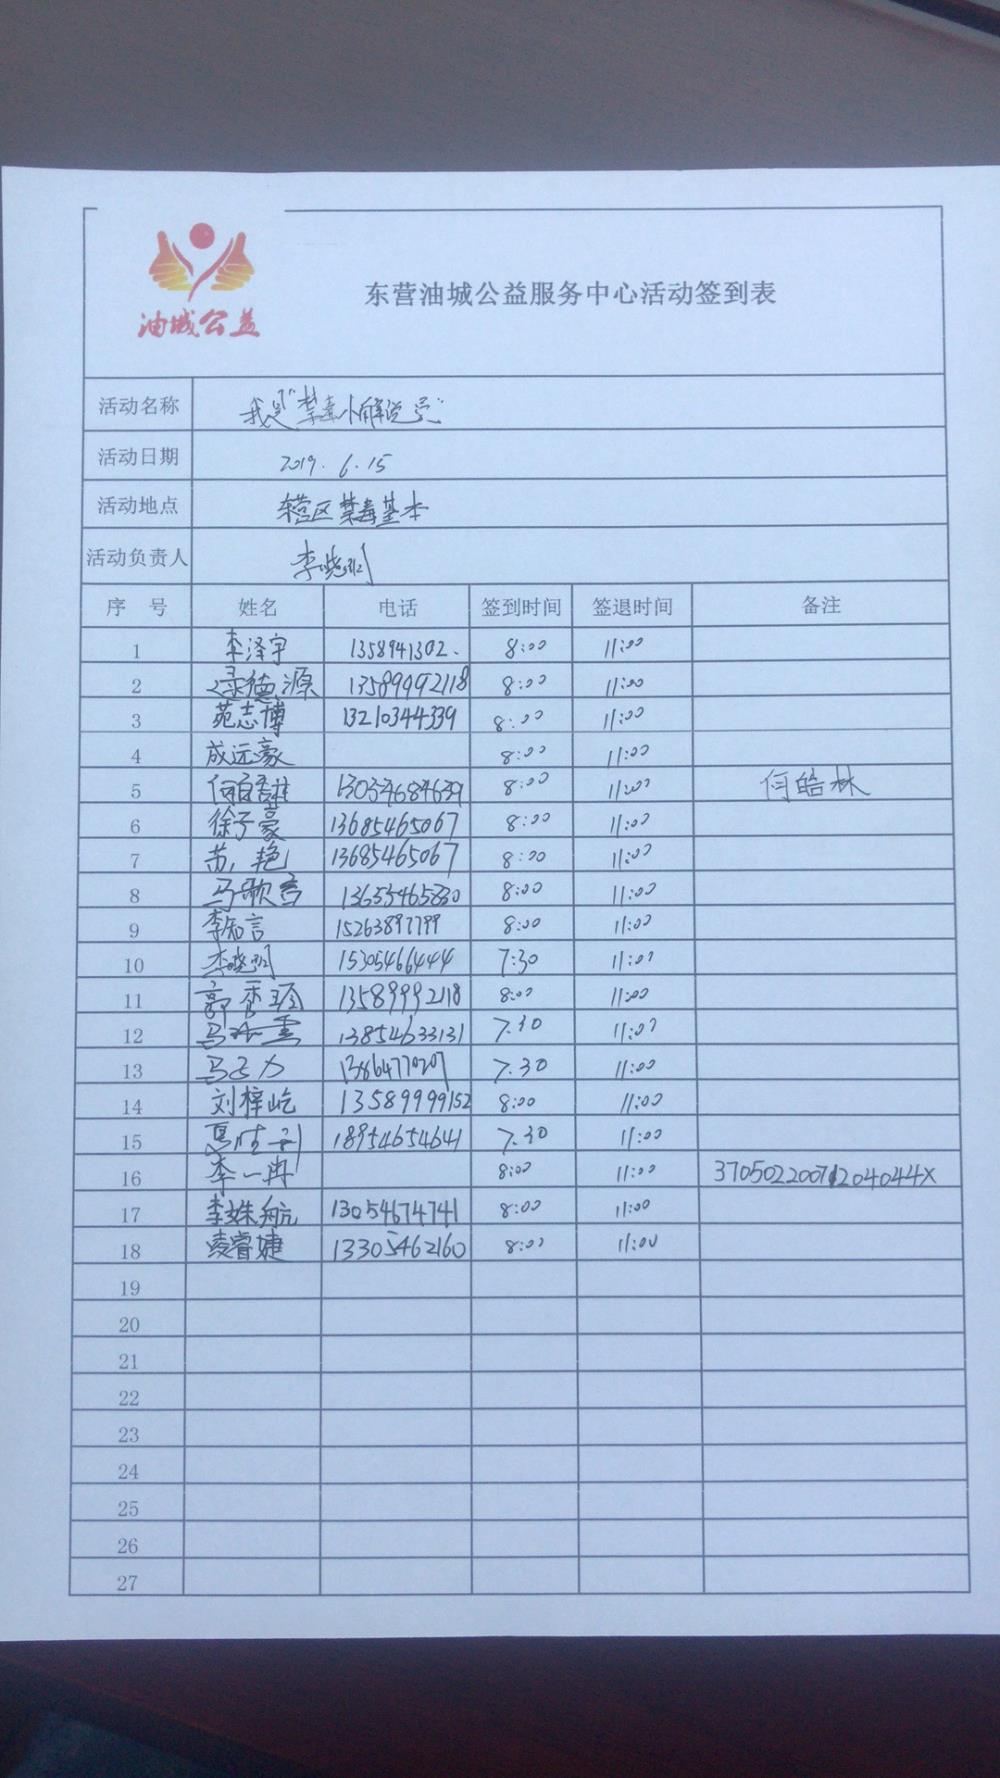 油城公益
东营油城公益服务中心活动签到表
活动名称 我是"禁毒小解说员"
活动日期 2019.6.15
活动地点 东营区禁毒基本
活动负责人 李晓
序号 姓名 电话 签到时间 签退时间 备注
1 李泽宇 1358941302. 8:00 11:00
2 德源 13589992118 8:00 11:00
3 苑志博 13210344339 8:00 11:00
4 成远豪 8:00 11:00
5 何皓林 13054684639 8:00 11:00 何皓林
6 徐子豪 13685465067 8:00 11:00
7 苏艳 13685465067 8:00 11:00
8 马歌言 8:00 11:00
9 李知言 15263897799 8:00 11:00
10 李晓 15305466444 7:30 11:00
11 郭秀 13589992118 8:00 11:00
12 马 13854633131 7.30 11:00
13 马 7.30 11:00
14 刘梓屹 13589999152 8:00 11:00
15 18954654641 7.30 11:00
16 李一冉 8:00 11:00 37050220071204044X
17 李姝航 13054674741 8:00 11:00
18 凌睿婕 13305462160 8:00 11:00
19
20
21
22
23
24
25
26
27